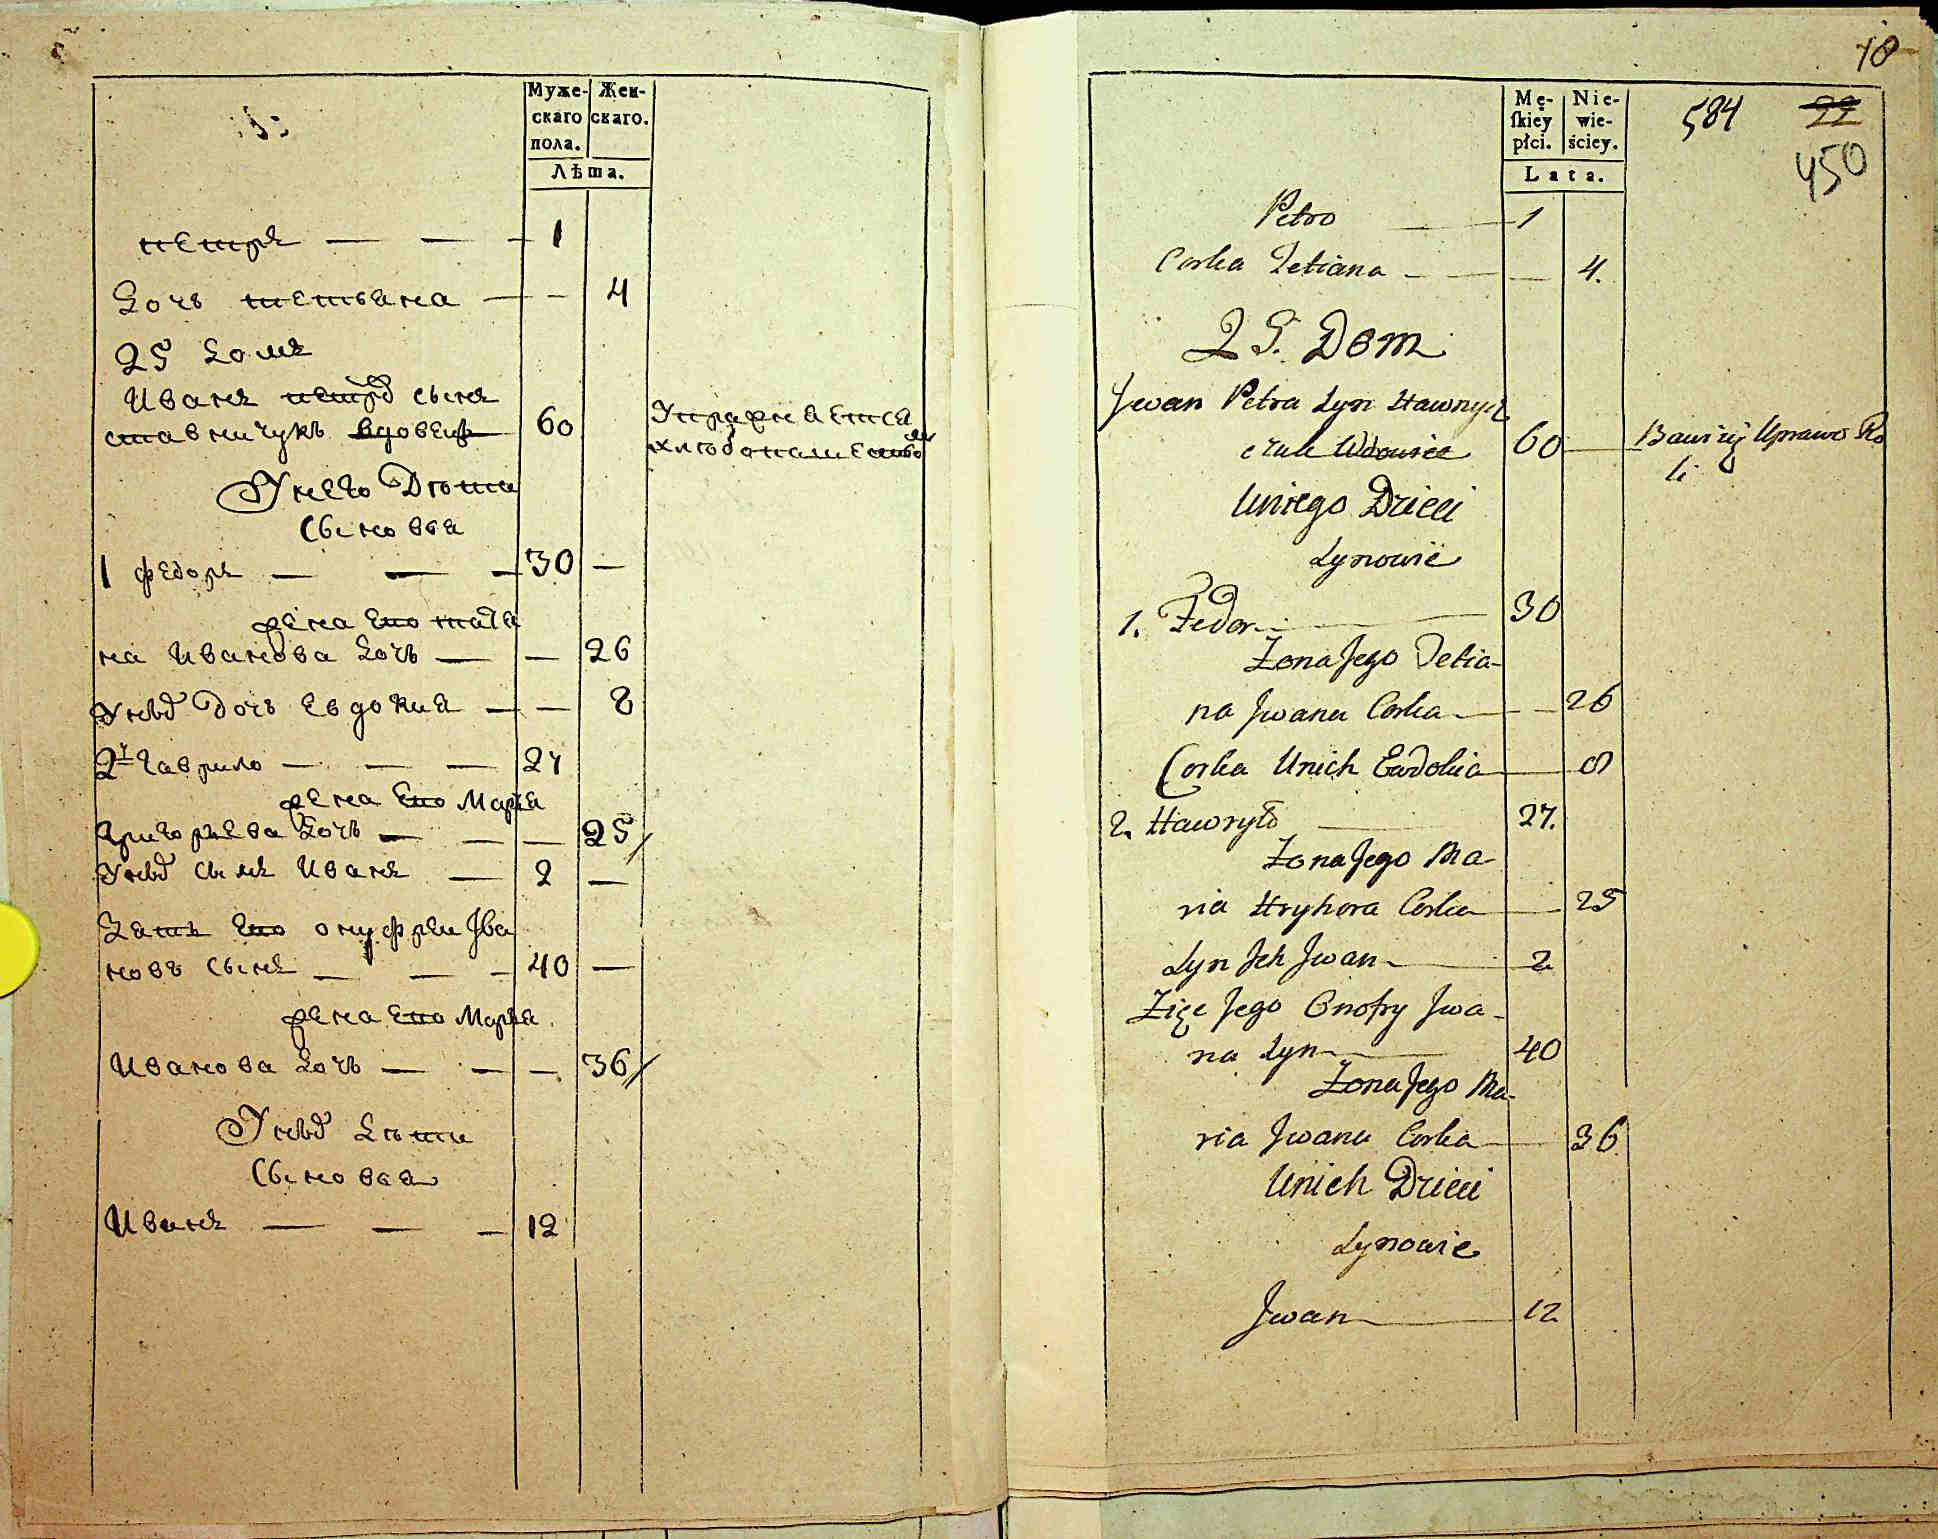 Муже-
скаго
пола.
Жен-
скаго.
Лѣта.
петръ — — — 1
дочь тетьяна — — 4
25 домъ
Иванъ петро сынъ
ставничукъ вдовец 60
Упражняется
хлѣбопашеством
У него Дѣти
Сыновья
1 федоръ — — — 30 —
жена его татя
на Иванова дочь — — 26
У них дочь Евдокия — — 8
2й гаврило — — — 27
жена его Марья
григорьева дочь — — — 25
У них сынъ Иванъ — 2 —
Зять его онуфреи Ива
новъ сынъ — — — 40 —
жена его Марья
Иванова дочь — — — 36
У них дѣти
Сыновья
Иванъ — — — 12
18
Mę-
skiey
płci.
Nie-
wie-
ściey.
Lata.
584
22
450
Petro — 1
Corka Tetiana — — — 4.
25. Dom
Jwan Petra Syn Stawny
czuk Wdowiec 60 — Bawi się Uprawo Ro
li
Uniego Dzieci
Synowie
1. Fedor — 30
Zona Jego Tetia-
na Jwana Corka — — 26
Corka Unich Ewdokia — 8
2. Hawryło — 27.
Zona Jego Ma-
ria Hryhora Corka — 25
Syn Jch Jwan — 2
Zięc Jego Onofry Jwa-
na Syn — 40
Zona Jego Ma-
ria Jwana Corka — 36
Unich Dzieci
Synowie
Jwan — 12